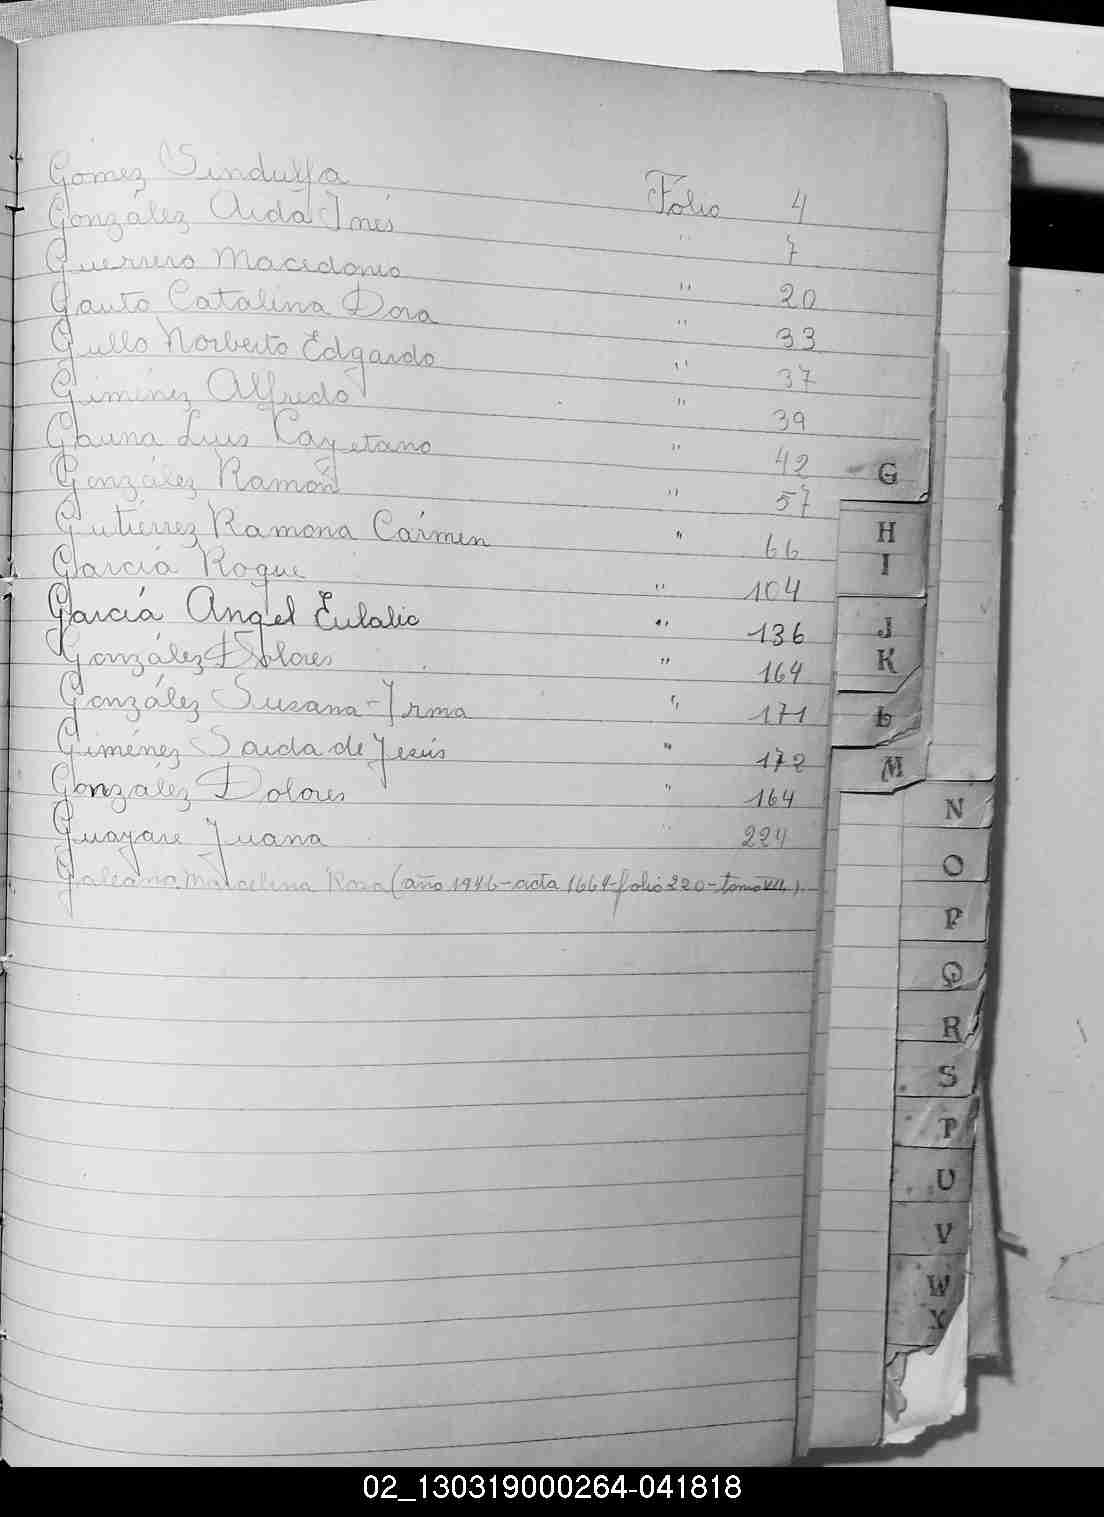 Gómez Sindulfa Folio 4
González Aida Inés " 7
Guerrero Macedonio " 20
Gauto Catalina Dora " 33
Gullo Norberto Edgardo " 37
Giménez Alfredo " 39
Gauna Luis Cayetano " 42
González Ramón " 57
Gutiérrez Ramona Cármen " 66
García Roque " 104
García Angel Eulalio " 136
González Dolores " 164
González Susana-Irma " 171
Giménez Saida de Jesús " 172
González Dolores " 164
Guayare Juana " 224
Galeano Marcelina Rosa (año 1946-acta 1664-folio 220-tomo VII)
G
H
I
J
K
L
M
N
O
P
Q
R
S
T
U
V
W
X
02_130319000264-041818